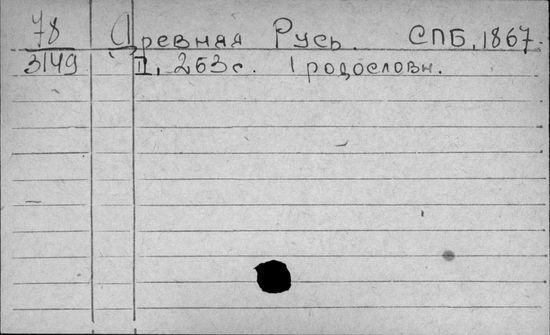 78 Древная Русь. СПБ, 1867.
3149 II, 263 с. 1 родословн.